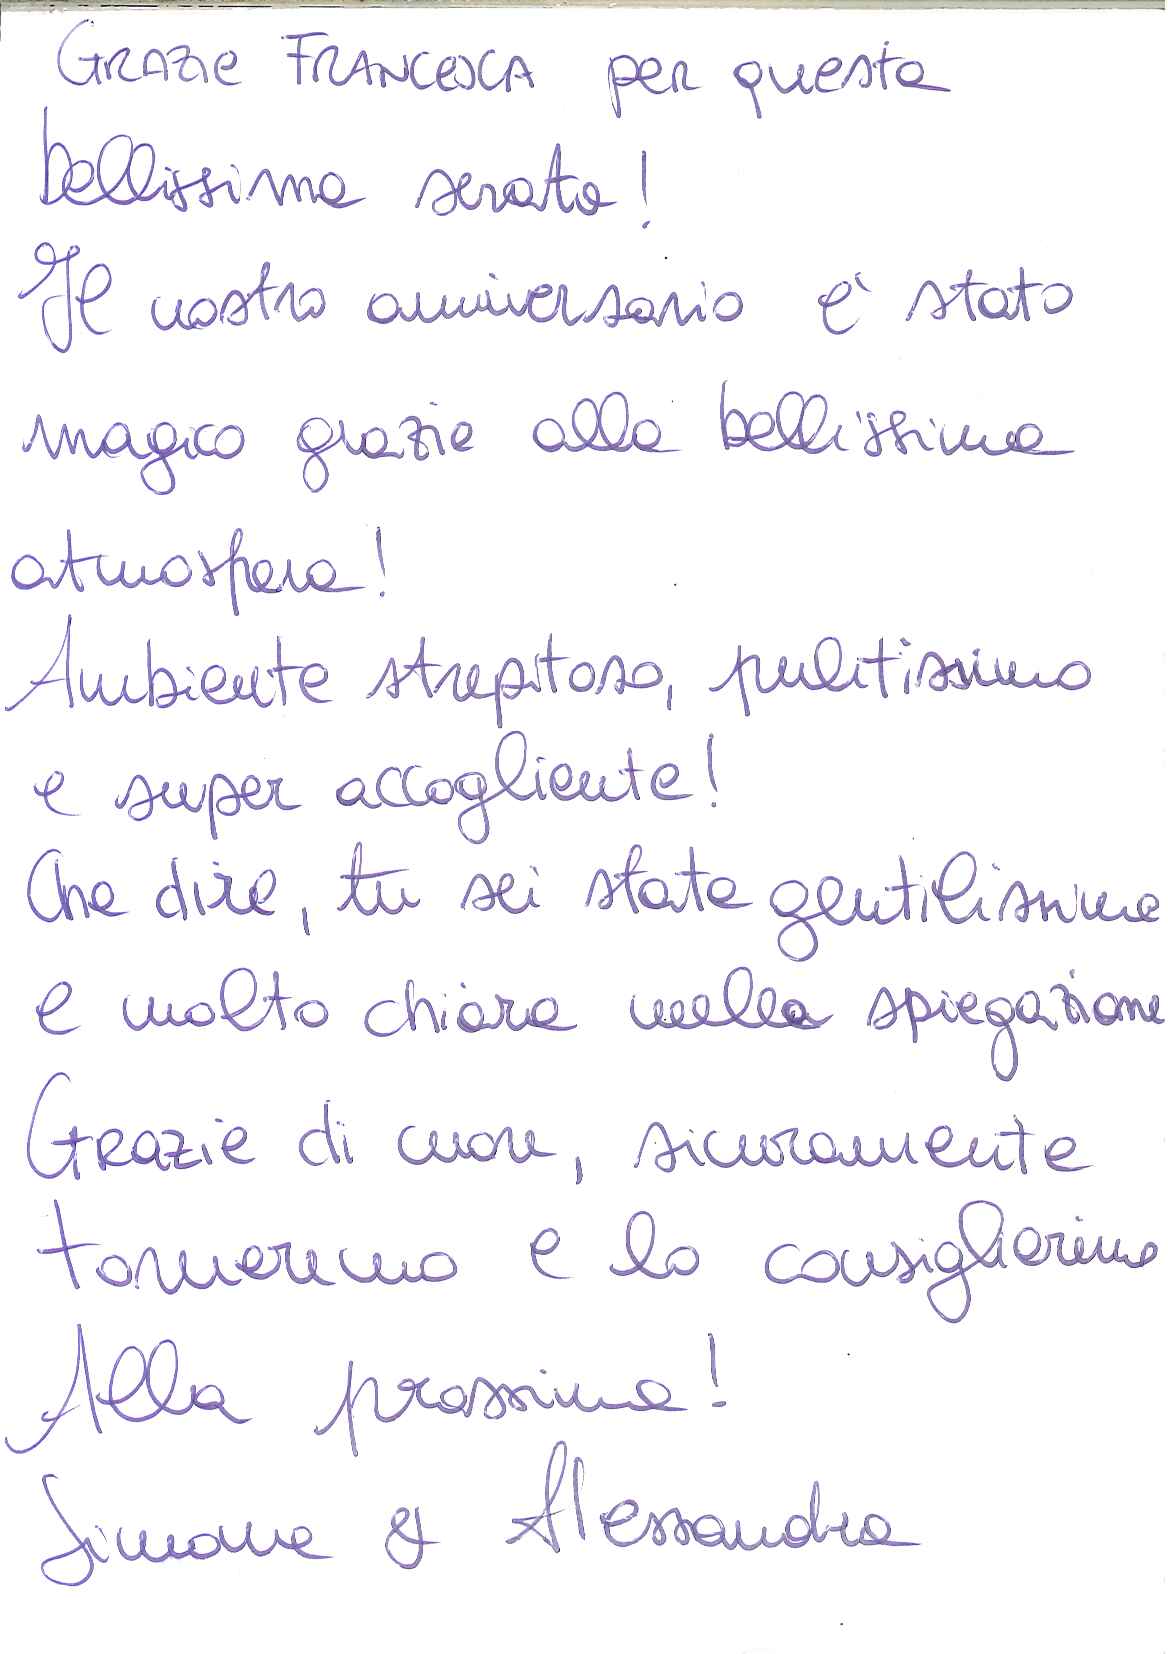 GRAZIE FRANCESCA per questa
bellissima serata!
Il nostro anniversario e' stato
magico grazie alla bellissima
atmosfera!
Ambiente strepitoso, pulitissimo
e super accogliente!
Che dire, tu sei stata gentilissima
e molto chiara nella spiegazione
Grazie di cuore, sicuramente
torneremo e lo consiglieremo
Alla prossima!
Simone & Alessandra